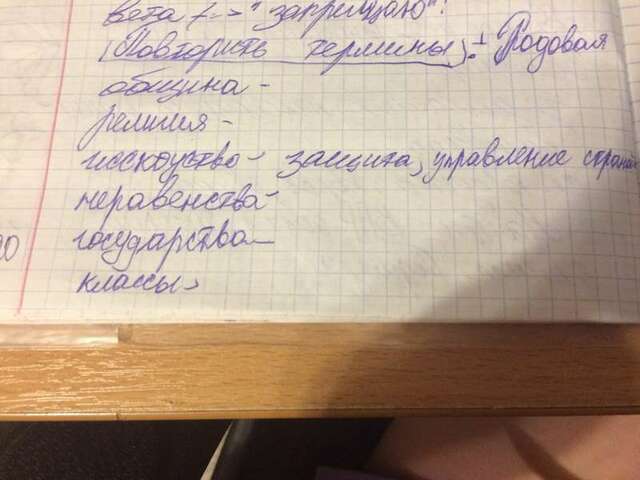 вета => "запрещаю"!
(Повторить термины)! Родовая
община -
религия -
исскоуство - защита, управление страна
неравенства -
государство -
классы -
20